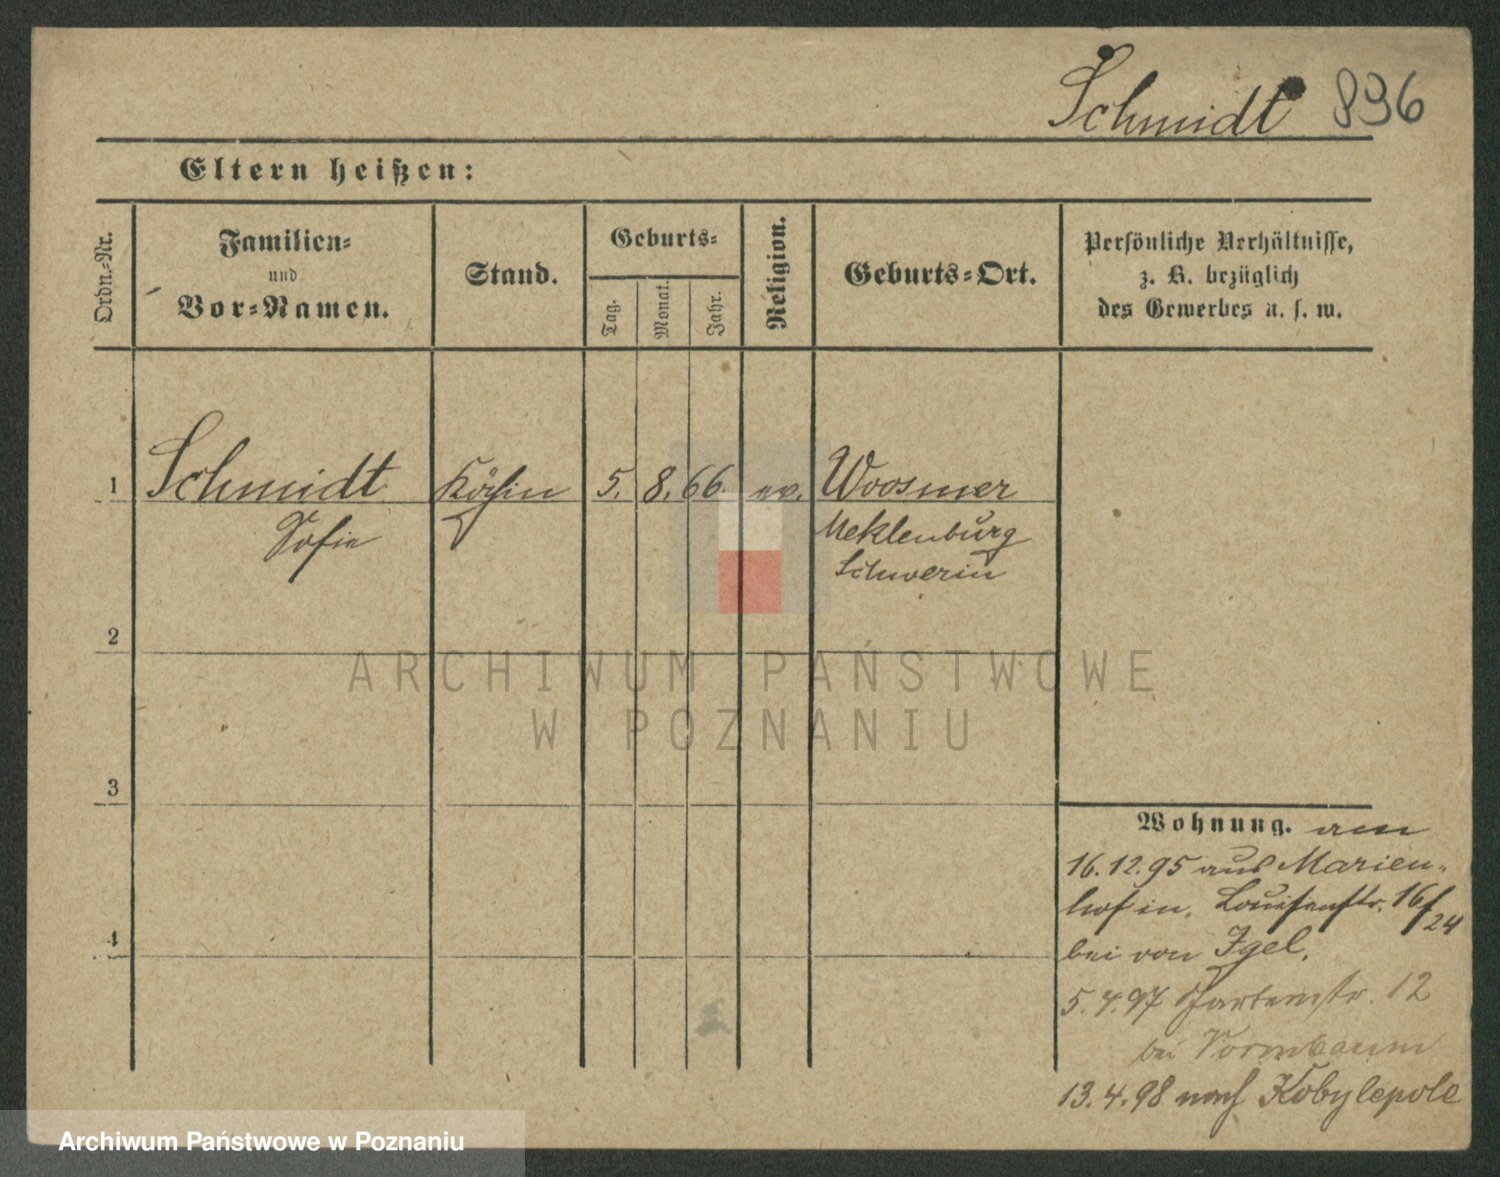 Schmidt 896
Eltern heißen:
Ordn.-Nr.
Familien-
und
Vor-Namen.
Stand.
Geburts-
Tag.
Monat.
Jahr.
Religion.
Geburts-Ort.
Persönliche Verhältnisse,
z. B. bezüglich
des Gewerbes u. s. w.
1 Schmidt Köchin 5. 8. 66. ev. Woosmer
Sofie Meklenburg
Schwerin
2
3
4
Wohnung. am
16.12.95 aus Marien-
hof in. Louisenstr. 16/24
bei von Igel.
5.4.97 Gartenstr. 12
bei Vormbaum
13.4.98 nach Kobylepole
ARCHIWUM PAŃSTWOWE
W POZNANIU
Archiwum Państwowe w Poznaniu